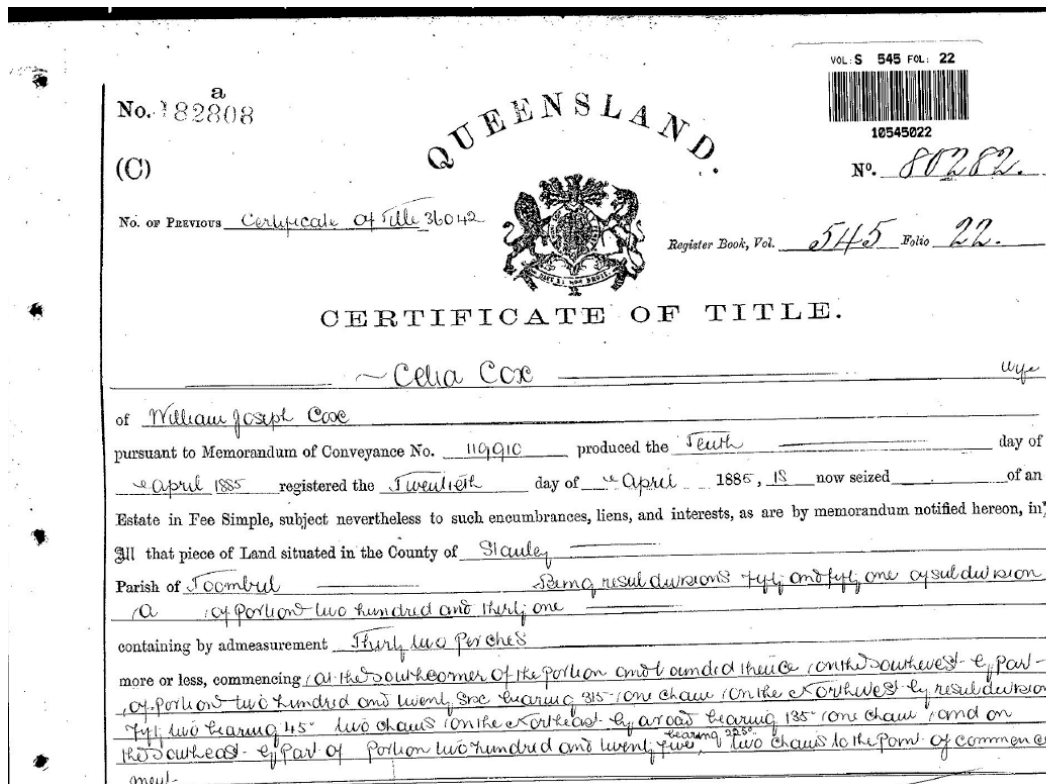 VOL: S 545 FOL: 22
10545022
a
No. 182808
QUEENSLAND.
(C)
No. 80282.
No. OF PREVIOUS Certificate of Title 36042
Register Book, Vol. 545 Folio 22.
DIEU ET MON DROIT
CERTIFICATE OF TITLE.
Celia Coxe wife
of William Joseph Coxe
pursuant to Memorandum of Conveyance No. 119910 produced the Tenth day of
April 1885 registered the Twentieth day of April 1885, is now seized of an
Estate in Fee Simple, subject nevertheless to such encumbrances, liens, and interests, as are by memorandum notified hereon, in
All that piece of Land situated in the County of Stanley
Parish of Toombul Being resubdivisions fifty and fifty one of subdivision
A of portion two hundred and thirty one
containing by admeasurement Thirty two Perches
more or less, commencing at the south corner of the portion and bounded thence on the southwest by part
of portion two hundred and twenty six bearing 315° one chain on the Northwest by resubdivision
fifty two bearing 45° two chains on the Northeast by a road bearing 135° one chain and on
the Southeast by Part of portion two hundred and twenty five, bearing 225° two chains to the Point of commence
ment.